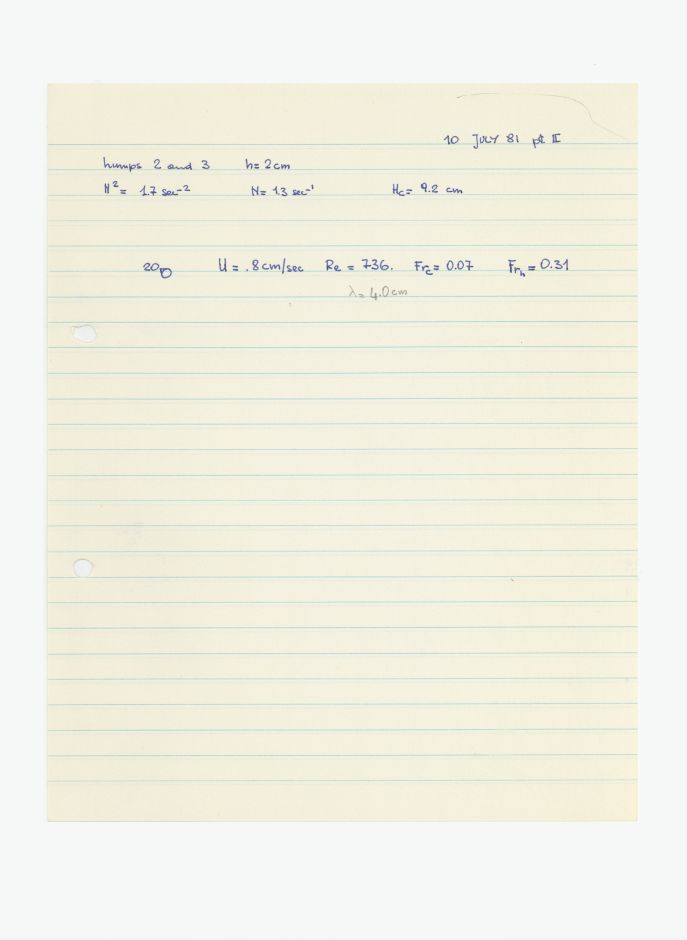 10 JULY 81 pt II
humps 2 and 3 h= 2cm
N²= 1.7 sec⁻² N= 1.3 sec⁻¹ Hc= 9.2 cm
U = .8cm/sec Re = 736. Frc= 0.07 Frh = 0.31
λ= 4.0cm